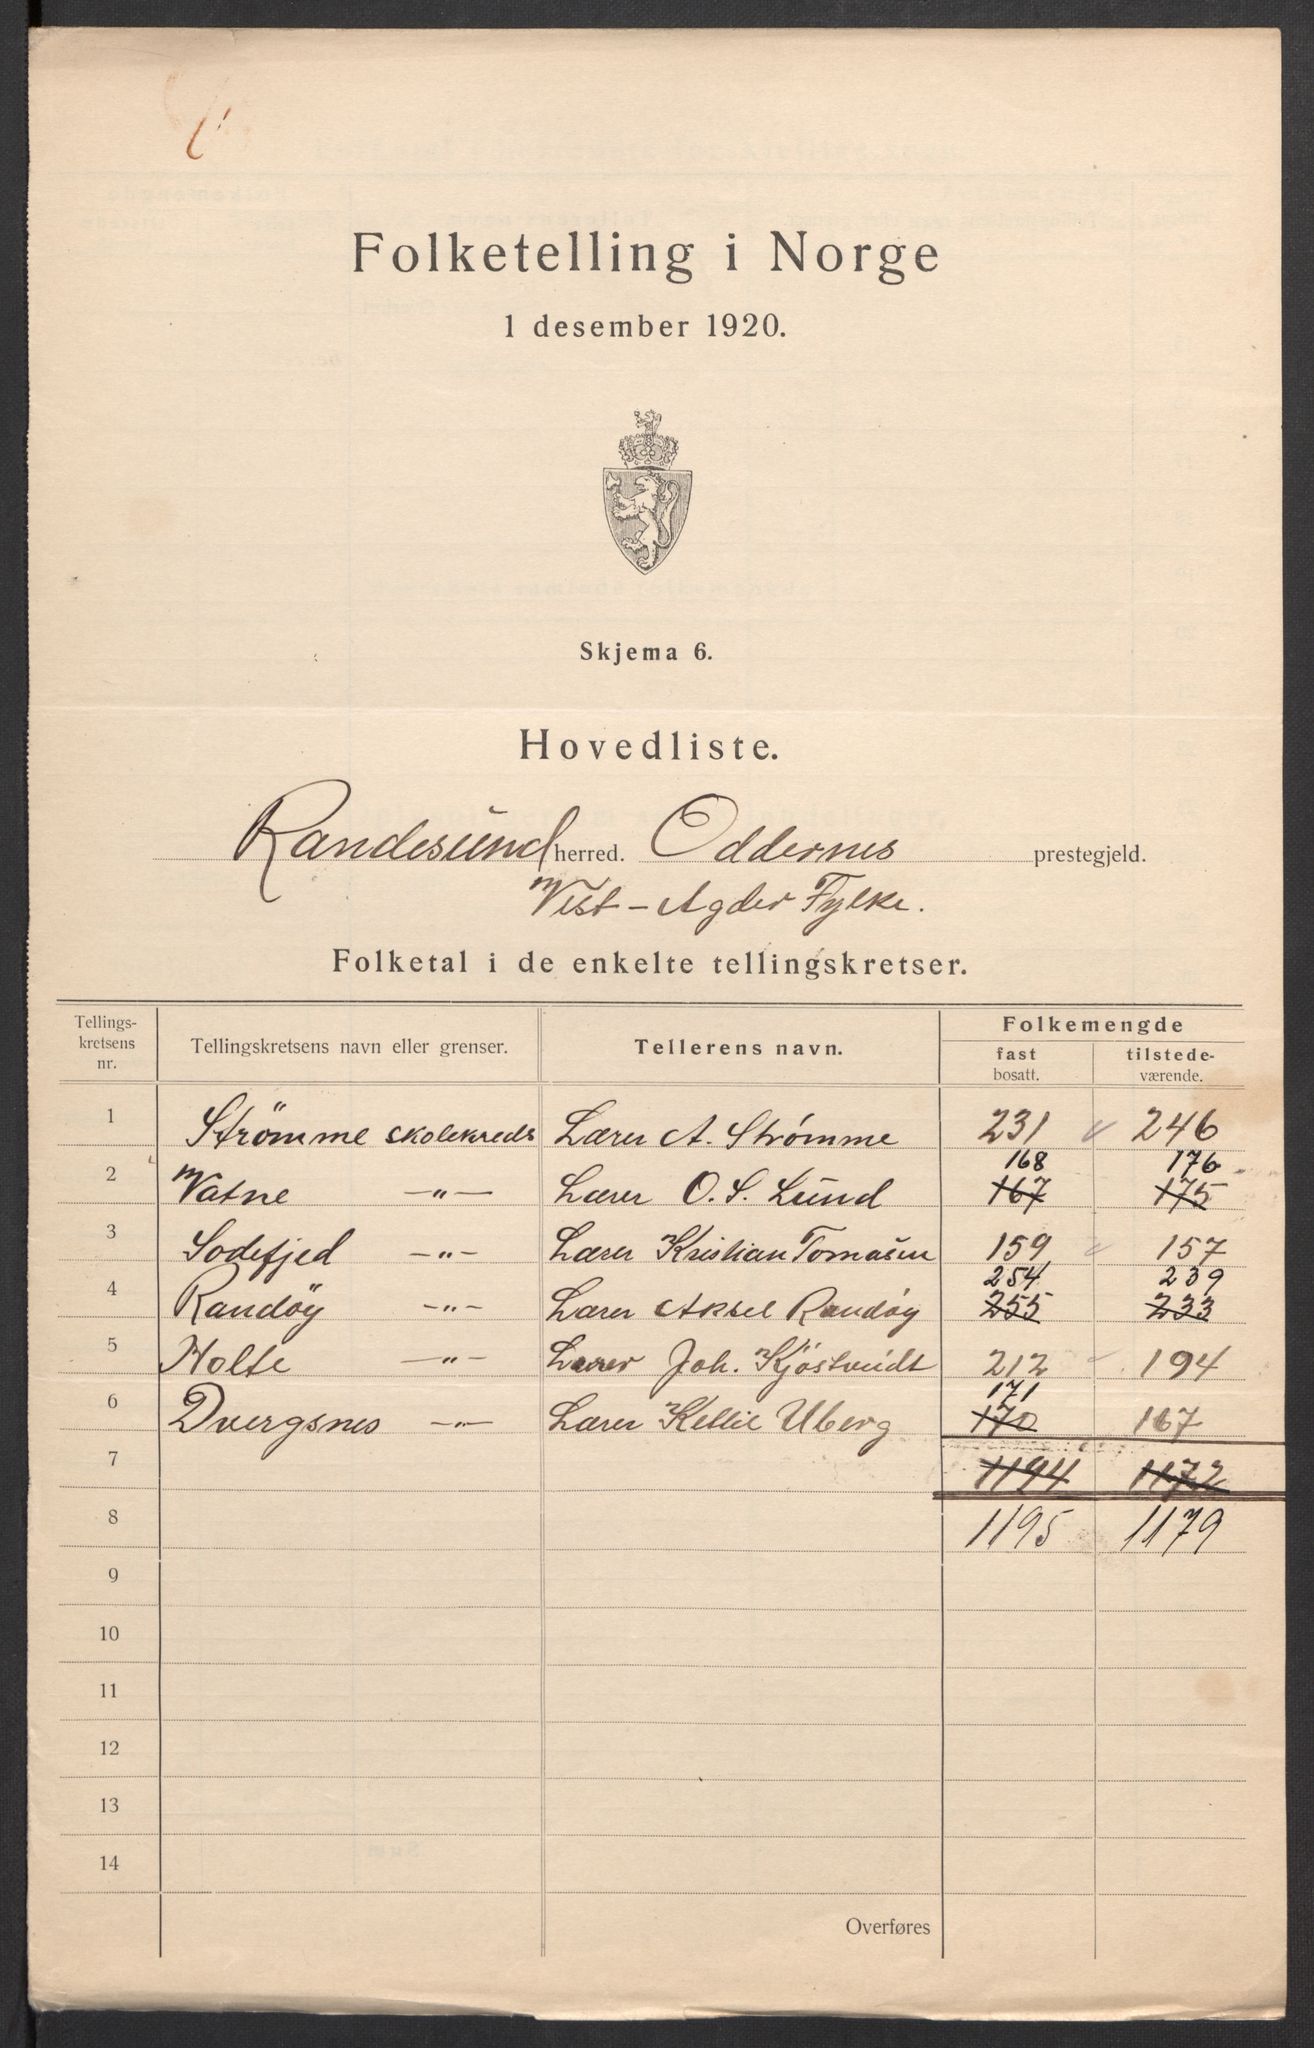 Folketelling i Norge
1 desember 1920.
Skjema 6.
Hovedliste.
Randesund herred. Oddernes prestegjeld.
Vest-Agder Fylke.
Folketal i de enkelte tellingskretser.
Tellings-kretsens nr. Tellingskretsens navn eller grenser. Tellerens navn. Folkemengde
fast bosatt. tilstede-værende.
1 Strömme skolekreds Lærer A. Strømme 231 246
168 176
2 Vatne —"— Lærer O. S. Lund 167 175
3 Sodefjed —"— Lærer Kristian Tomasen 159 157
254 239
4 Randöy —"— Lærer Aksel Randøy 255 233
5 Holte —"— Lærer Joh. Kjöstvedt 212 194
171
6 Dvergsnes —"— Lærer Kellil Uberg 170 167
7 1194 1172
8 1195 1179
9
10
11
12
13
14
Overføres